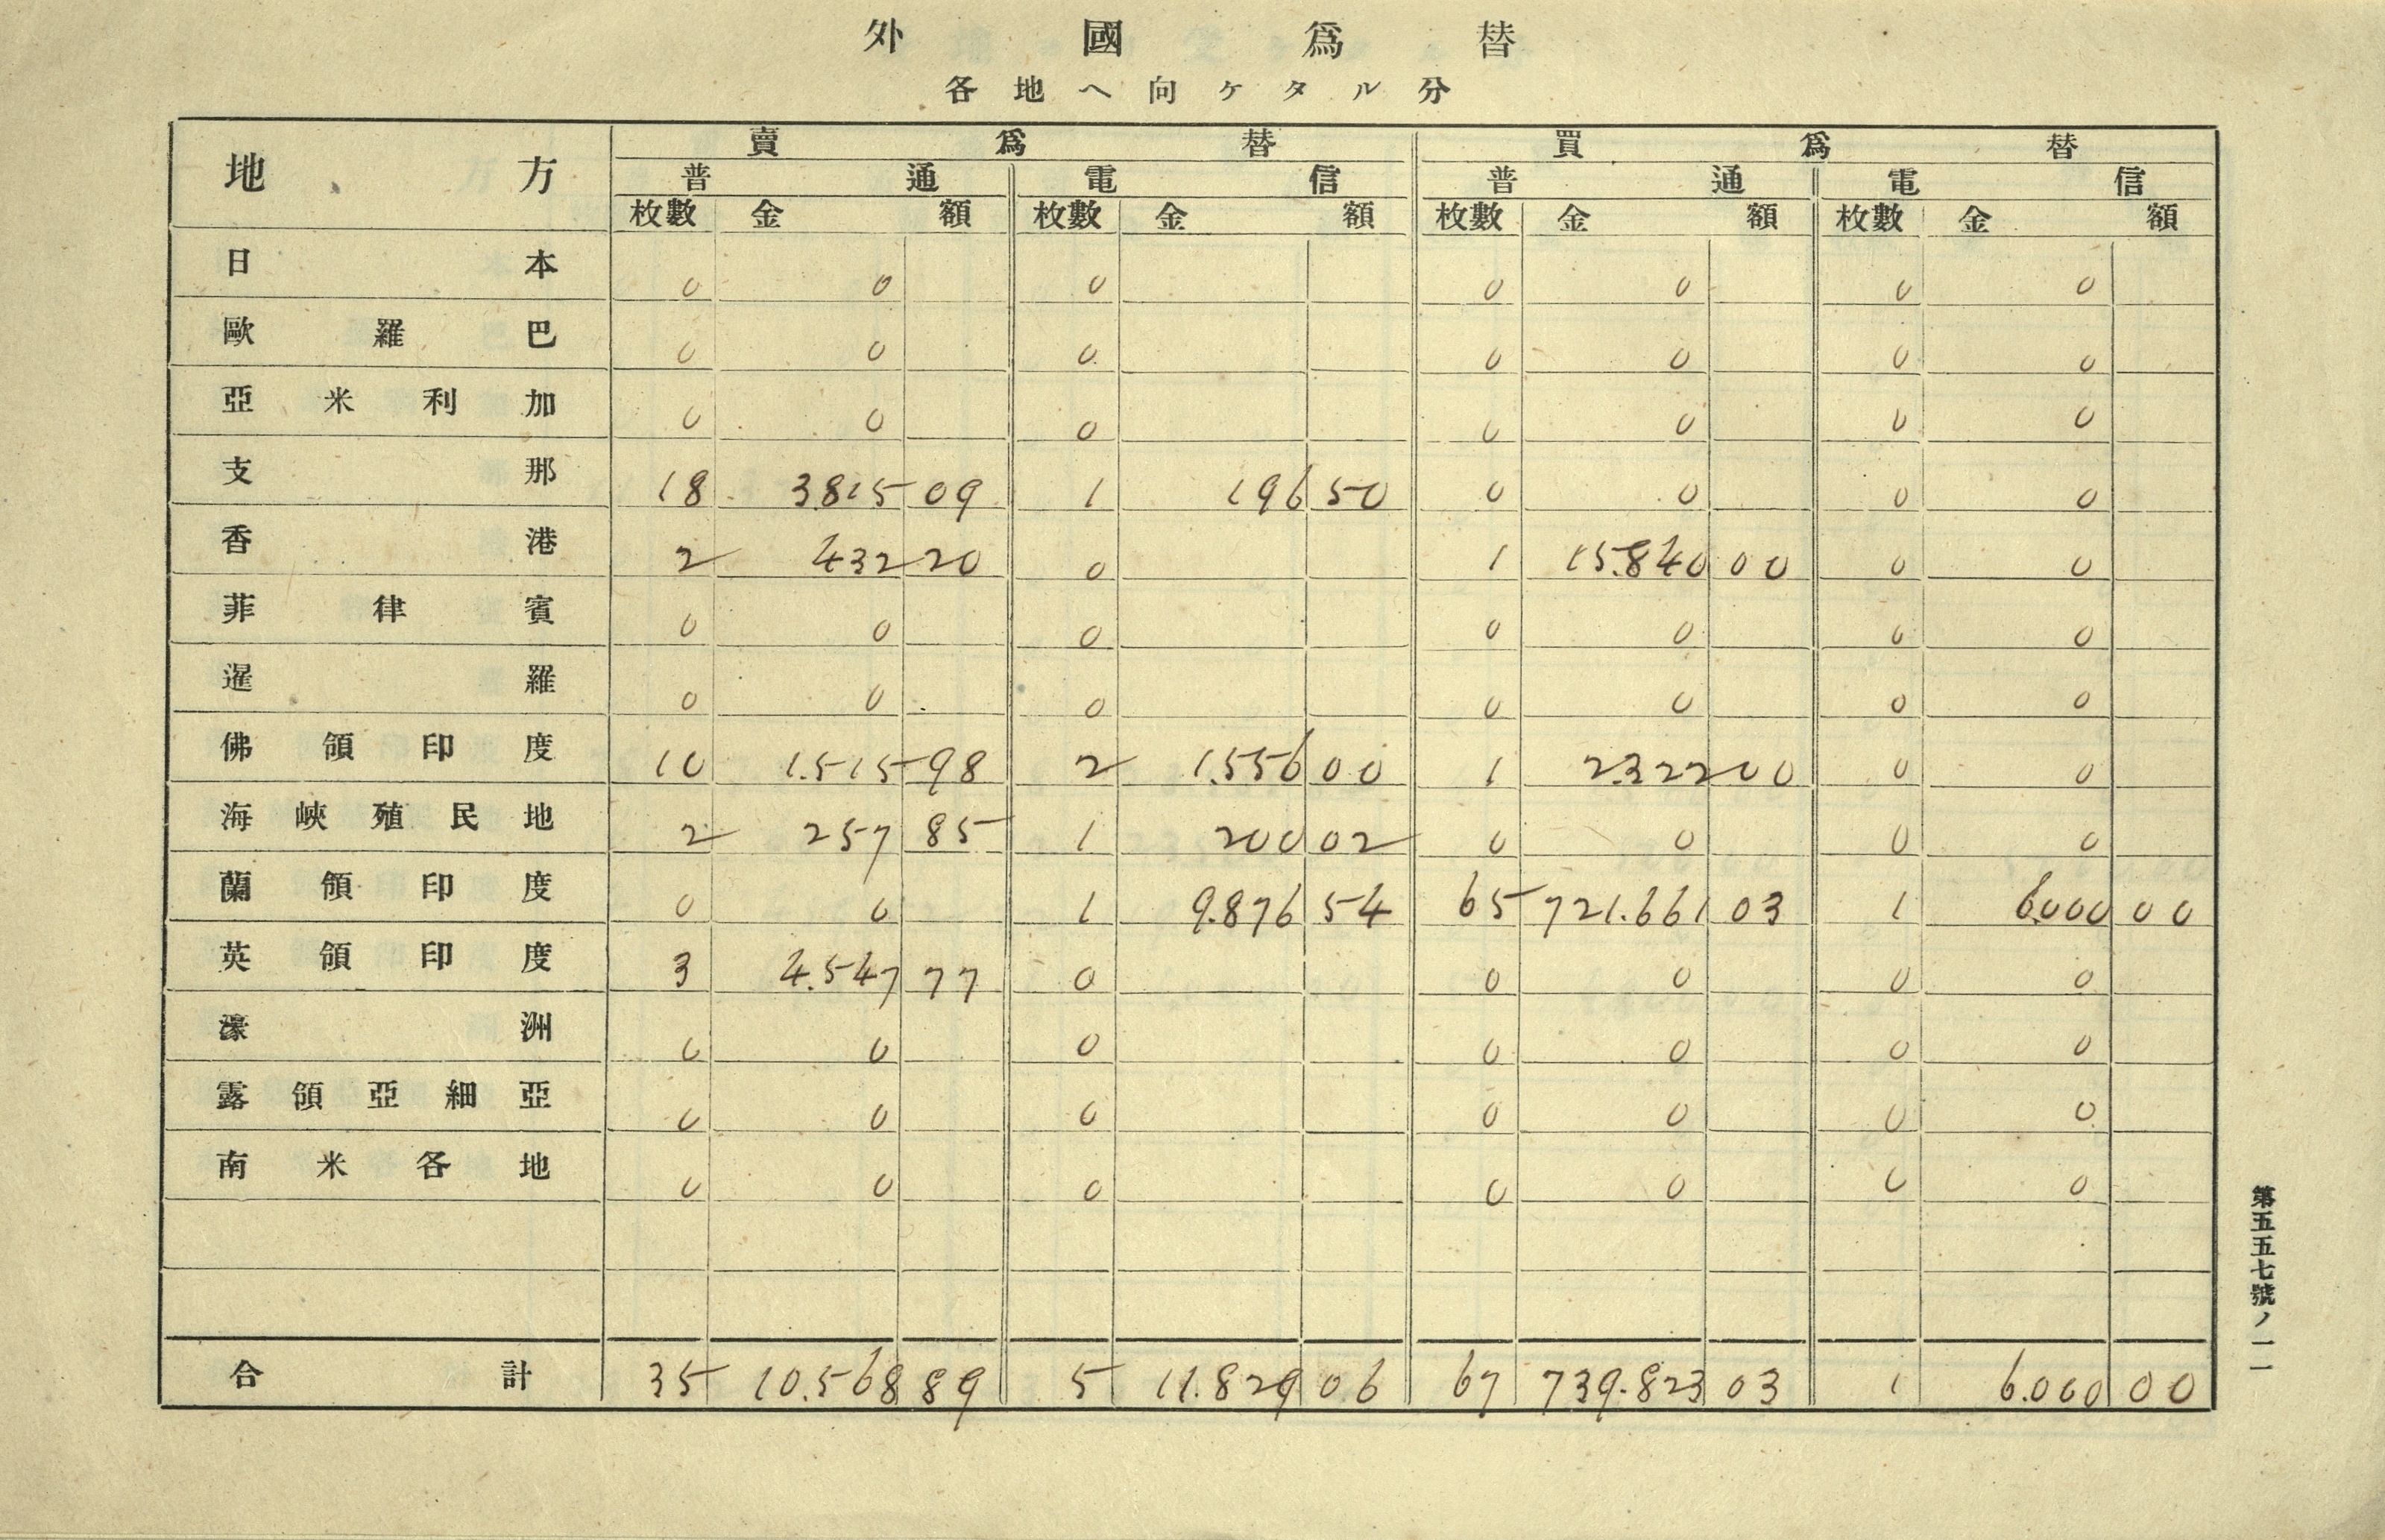 外國爲替
各地へ向ケタル分
地方 賣爲替 買爲替
普通 電信 普通 電信
枚數 金額 枚數 金額 枚數 金額 枚數 金額
日本 0 0 0 0 0 0 0
歐羅巴 0 0 0 0 0 0 0
亞米利加 0 0 0 0 0 0 0
支那 18 3.815 09 1 196 50 0 0 0 0
香港 2 432 20 0 1 15.840 00 0 0
菲律賓 0 0 0 0 0 0 0
暹羅 0 0 0 0 0 0 0
佛領印度 10 1.515 98 2 1.556 00 1 2.322 00 0 0
海峽殖民地 2 257 85 1 200 02 0 0 0 0
蘭領印度 0 0 1 9.876 54 65 721.661 03 1 6.000 00
英領印度 3 4.547 77 0 0 0 0 0
濠洲 0 0 0 0 0 0 0
露領亞細亞 0 0 0 0 0 0 0
南米各地 0 0 0 0 0 0 0
合計 35 10.568 89 5 11.829 06 67 739.823 03 1 6.000 00
第五五七號ノ一一